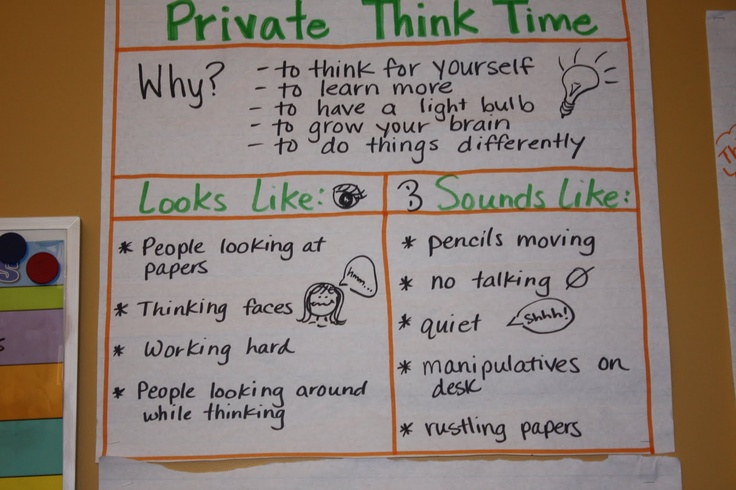 Private Think Time
Why?
- to think for yourself
- to learn more
- to have a light bulb
- to grow your brain
- to do things differently
Looks Like:
* People looking at
papers
* Thinking faces
hmm...
* Working hard
* People looking around
while thinking
Sounds Like:
* pencils moving
* no talking
* quiet
Shhh!
* manipulatives on
desk
* rustling papers